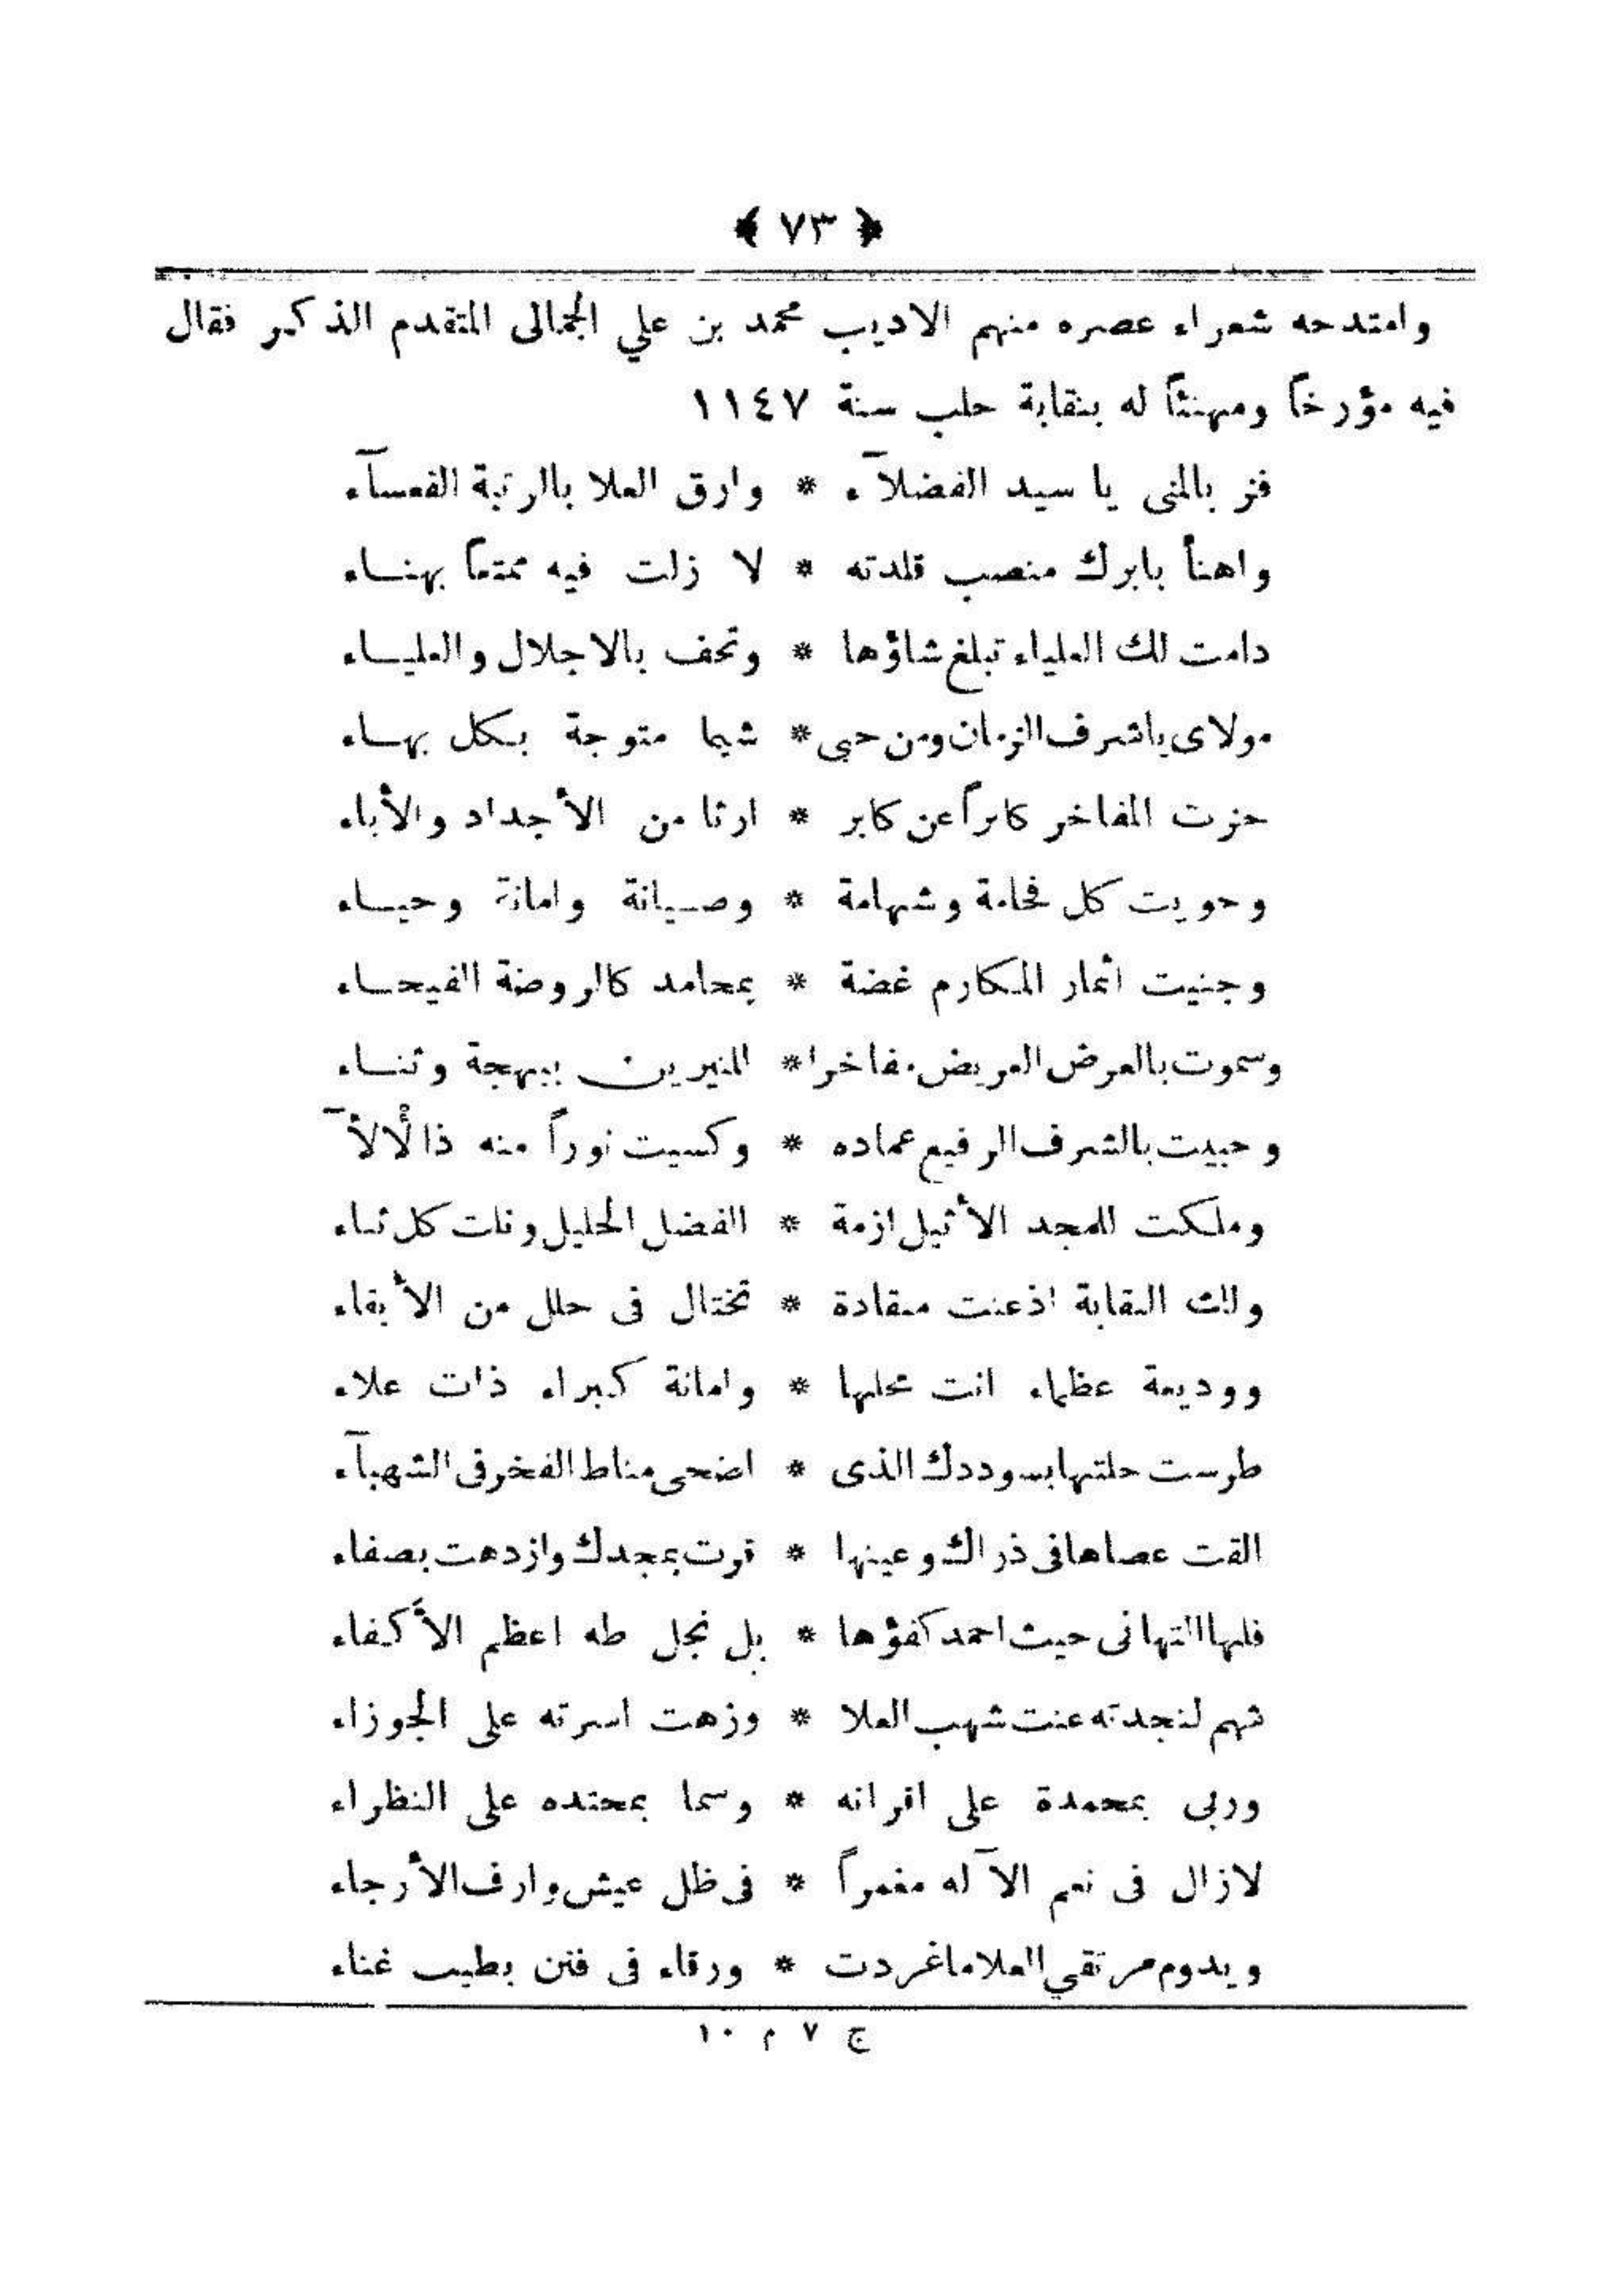 ﴿ ٧٣ ﴾
وامتدحه شعراء عصره منهم الاديب محمد بن علي الجمالى المتقدم الذكر فقال
فيه مؤرخاً ومهنئاً له بنقابة حلب سنة ١١٤٧
فز بالمنى يا سيد الفضلآء * وارق العلا بالرتبة القعسآء
واهنأ بابرك منصب قلدته * لا زلت فيه ممتعاً بهناء
دامت لك العلياء تبلغ شاؤها * وتحف بالاجلال والعلياء
مولاى ياشرف الزمان ومن حبى * شيما متوجة بكل بهاء
حزت المفاخر كابراً عن كابر * ارثا من الأجداد والأباء
وحويت كل فخامة وشهامة * وصيانة وامانة وحياء
وجنيت أثمار المكارم غضة * بمحامد كالروضة الفيحاء
وسموت بالعرض العريض مفاخرا * المنيرين ببهجة وثناء
وحبيت بالشرف الرفيع عماده * وكسيت نوراً منه ذا لألآ
وملكت للمجد الأثيل ازمة * الفضل الجليل ونلت كل ثناء
ولك النقابة اذعنت منقادة * تختال فى حلل من الأبقاء
ووديعة عظماء انت محلها * وامانة كبراء ذات علاء
طرست حلتها بسوددك الذى * اضحى مناط الفخر فى الشهبآء
القت عصاها فى ذراك وعينها * قرت بمجدك وازدهت بصفاء
فلها التهانى حيث احمد كفؤها * بل نجل طه اعظم الأكفاء
شهم لنجدته عنت شهب العلا * وزهت اسرته على الجوزاء
وربى بمحمدة على اقرانه * وسما بمحتده على النظراء
لازال فى نعم الآله مغمراً * فى ظل عيش وارف الأرجاء
ويدوم مرتقي العلا ماغردت * ورقاء فى فنن بطيب غناء
ج ٧ م ١٠